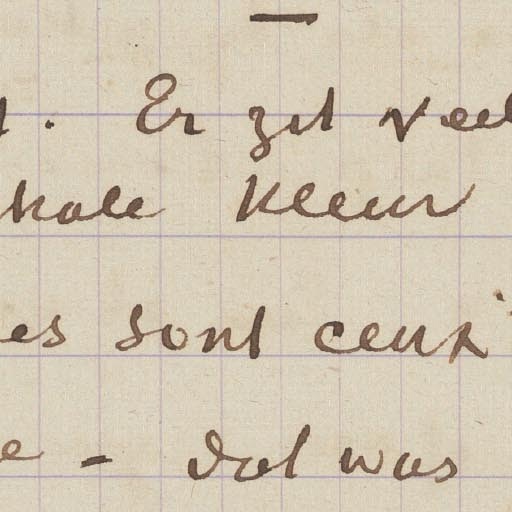 . Er zit veel
kale kleur
es sont ceux
e - dat was